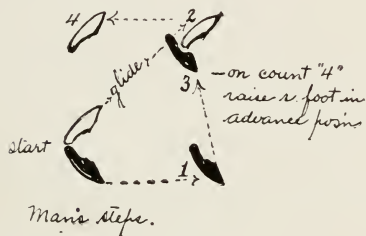 4
2
glide
3
—on count "4"
raise r. foot in
advance pos'n
start
1
Man's steps.